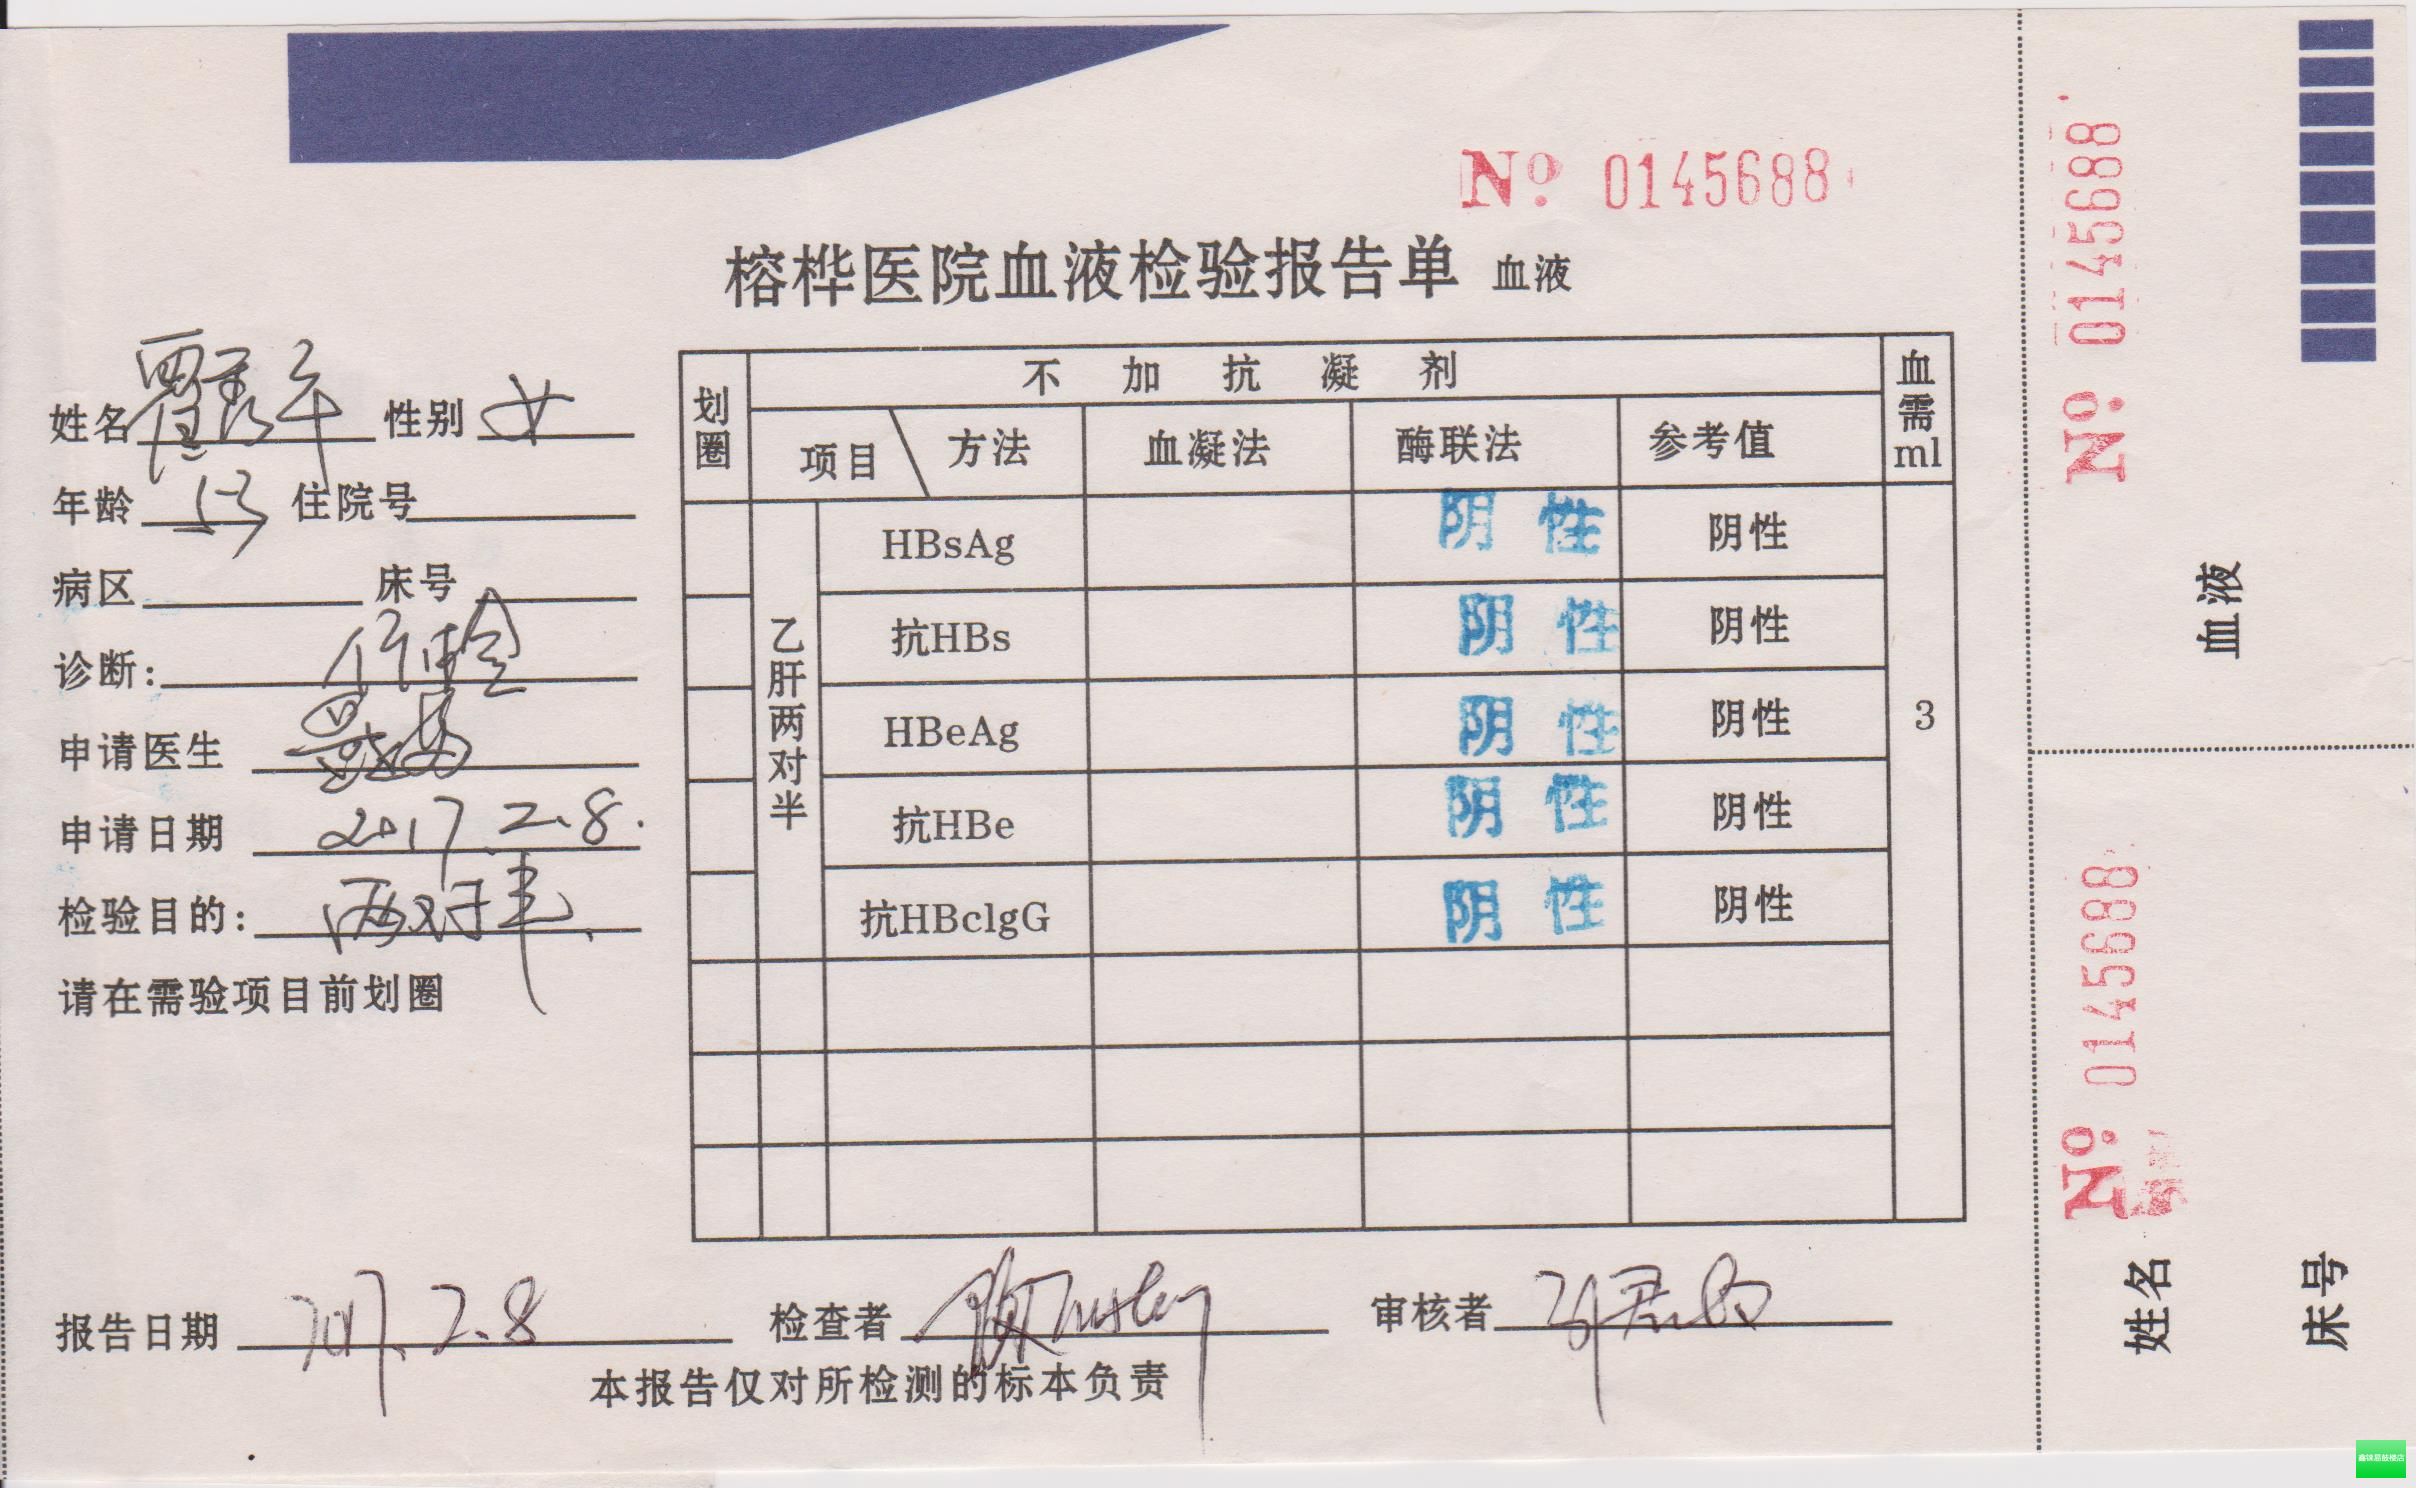 No. 0145688
榕桦医院血液检验报告单 血液
姓名 性别 女
年龄 住院号
病区 床号
诊断: 体检
申请医生
申请日期 2017.2.8.
检验目的: 两对半
请在需验项目前划圈
划圈 不加抗凝剂 血需ml
项目 方法 血凝法 酶联法 参考值
乙肝两对半 3
HBsAg 阴性 阴性
抗HBs 阴性 阴性
HBeAg 阴性 阴性
抗HBe 阴性 阴性
抗HBclgG 阴性 阴性
报告日期 2017.2.8 检查者 审核者
本报告仅对所检测的标本负责
No. 0145688
血液
No. 0145688
姓名
床号
鑫锦易鼓楼店